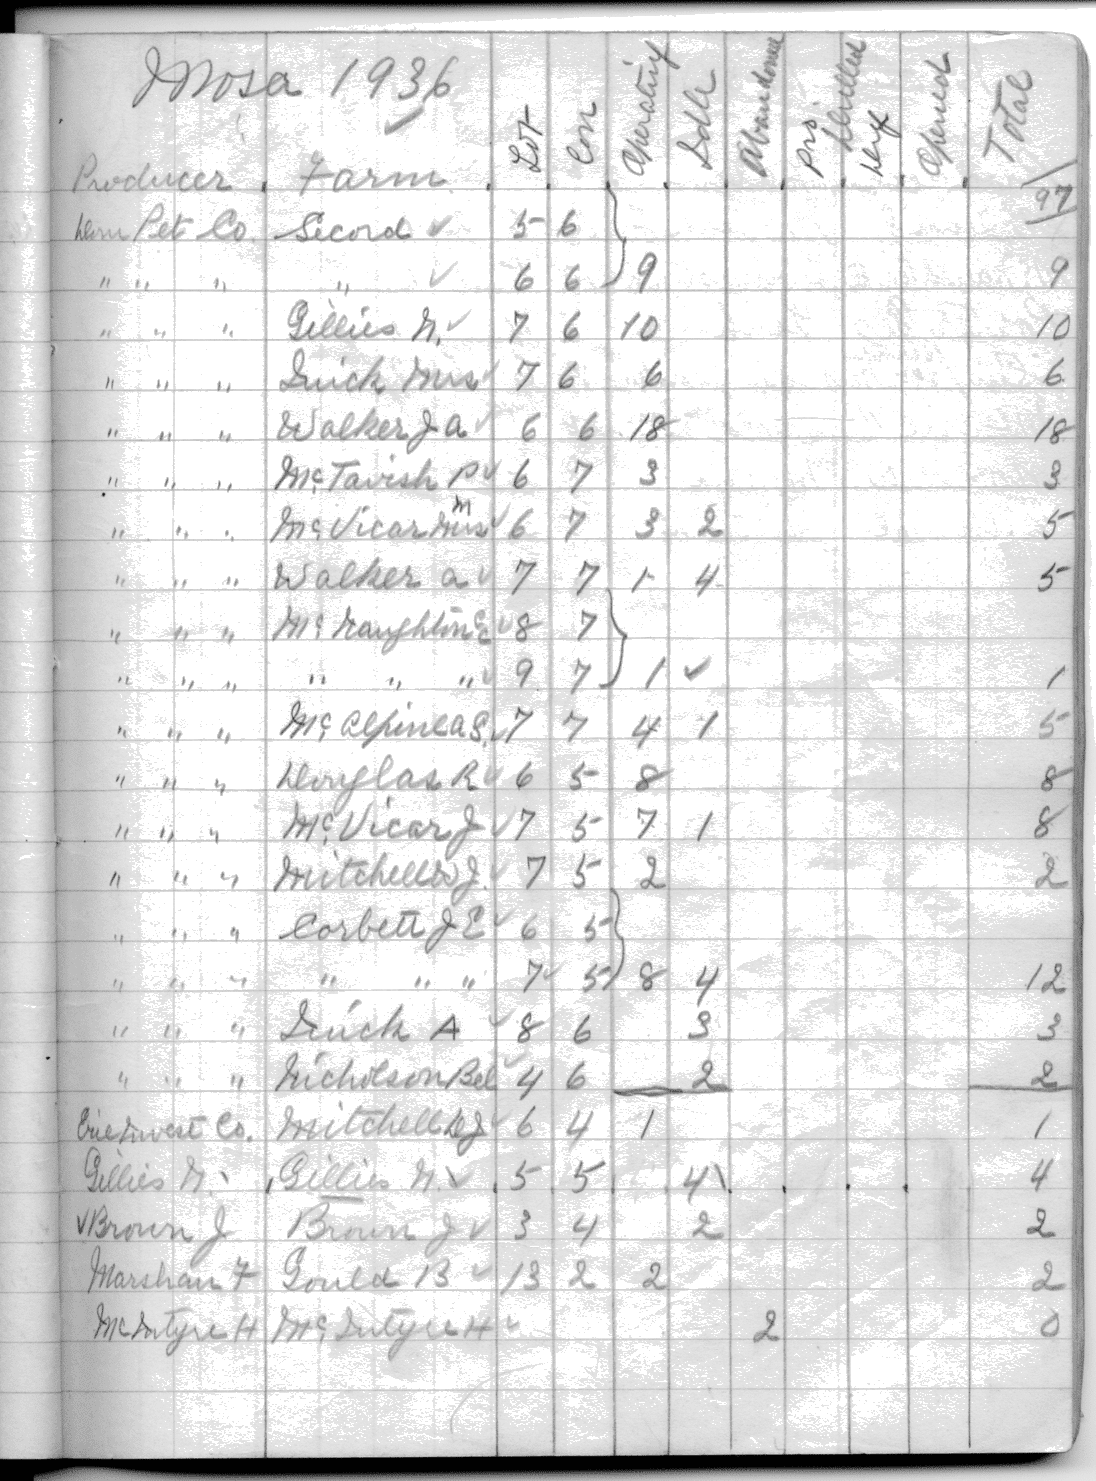 Mosa 1936 ✓
Producer Farm Lot Con Operating Idle Abandoned Drilled Opened Total
97
Dom Pet Co. Secord ✓ 5 6
" " " " ✓ 6 6 } 9 9
" " " Gillies N. ✓ 7 6 10 10
" " " Quick Mrs ✓ 7 6 6 6
" " " Walker J A ✓ 6 6 18 18
" " " McTavish P ✓ 6 7 3 3
" " " McVicar Mrs M ✓ 6 7 3 2 5
" " " Walker A ✓ 7 7 1 4 5
" " " McNaughton ✓ 8 7
" " " " " " ✓ 9 7 } 1 ✓ 1
" " " McAlpine A S. ✓ 7 7 4 1 5
" " " Douglas R ✓ 6 5 8 8
" " " McVicar J ✓ 7 5 7 1 8
" " " Mitchell J. ✓ 7 5 2 2
" " " Corbett J E ✓ 6 5
" " " " " " 7 ✓ 5 } 8 4 12
" " " Quick A ✓ 8 6 3 3
" " " Nicholson Bel ✓ 4 6 2 2
Erie Invest Co. Mitchell D J ✓ 6 4 1 1
Gillies N. Gillies N. ✓ 5 5 4 4
✓ Brown J Brown J ✓ 3 4 2 2
Marshan F Gould B ✓ 13 2 2 2
McIntyre H McIntyre H ✓ 2 0